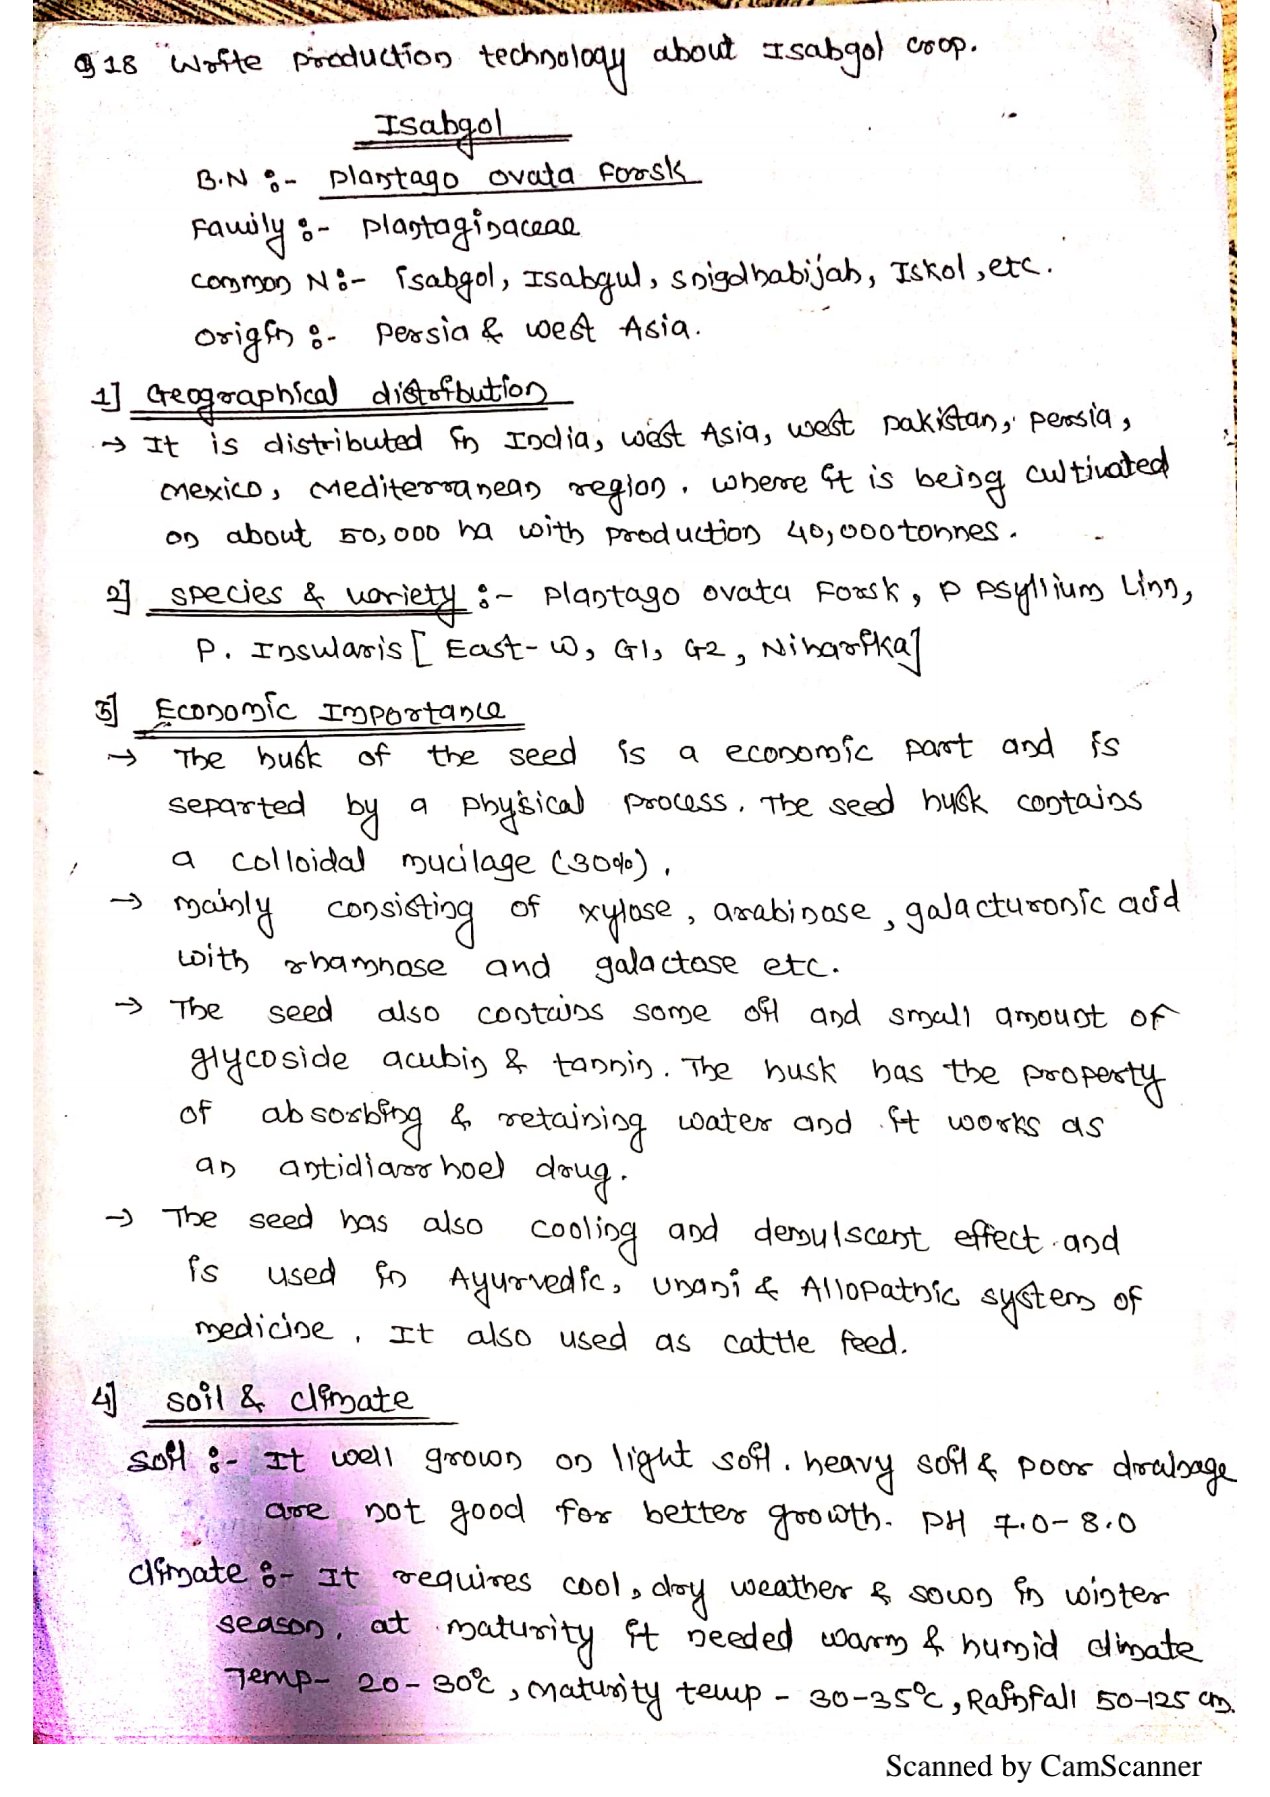 Q 18 Write production technology about Isabgol crop.
Isabgol
B.N :- Plantago ovata Forsk
Family :- Plantaginaceae
Common N :- Isabgol, Isabgul, Snigdhabijah, Iskol, etc.
Origin :- Persia & West Asia.
1] Geographical distribution
→ It is distributed in India, West Asia, West Pakistan, Persia,
Mexico, Mediterranean region. Where it is being cultivated
on about 50,000 ha with production 40,000 tonnes.
2] Species & variety :- Plantago ovata Forsk, P Psyllium Linn,
P. Insularis [East-W, G1, G2, Niharika]
3] Economic Importance
→ The husk of the seed is a economic part and is
separted by a physical process. The seed husk contains
a colloidal mucilage (30%).
→ mainly consisting of xylose, arabinose, galacturonic acid
with rhamnose and galactose etc.
→ The seed also contains some oil and small amount of
glycoside acubin & tannin. The husk has the property
of absorbing & retaining water and it works as
an antidiarrhoel drug.
→ The seed has also cooling and demulscent effect and
is used in Ayurvedic, Unani & Allopathic system of
medicine. It also used as cattle feed.
4] soil & climate
Soil :- It well grown on light soil. heavy soil & poor drainage
are not good for better growth. PH 7.0-8.0
Climate :- It requires cool, dry weather & sown in winter
season. at maturity it needed warm & humid climate
Temp- 20-30°c, Maturity temp - 30-35°c, Rainfall 50-125 cm.
Scanned by CamScanner